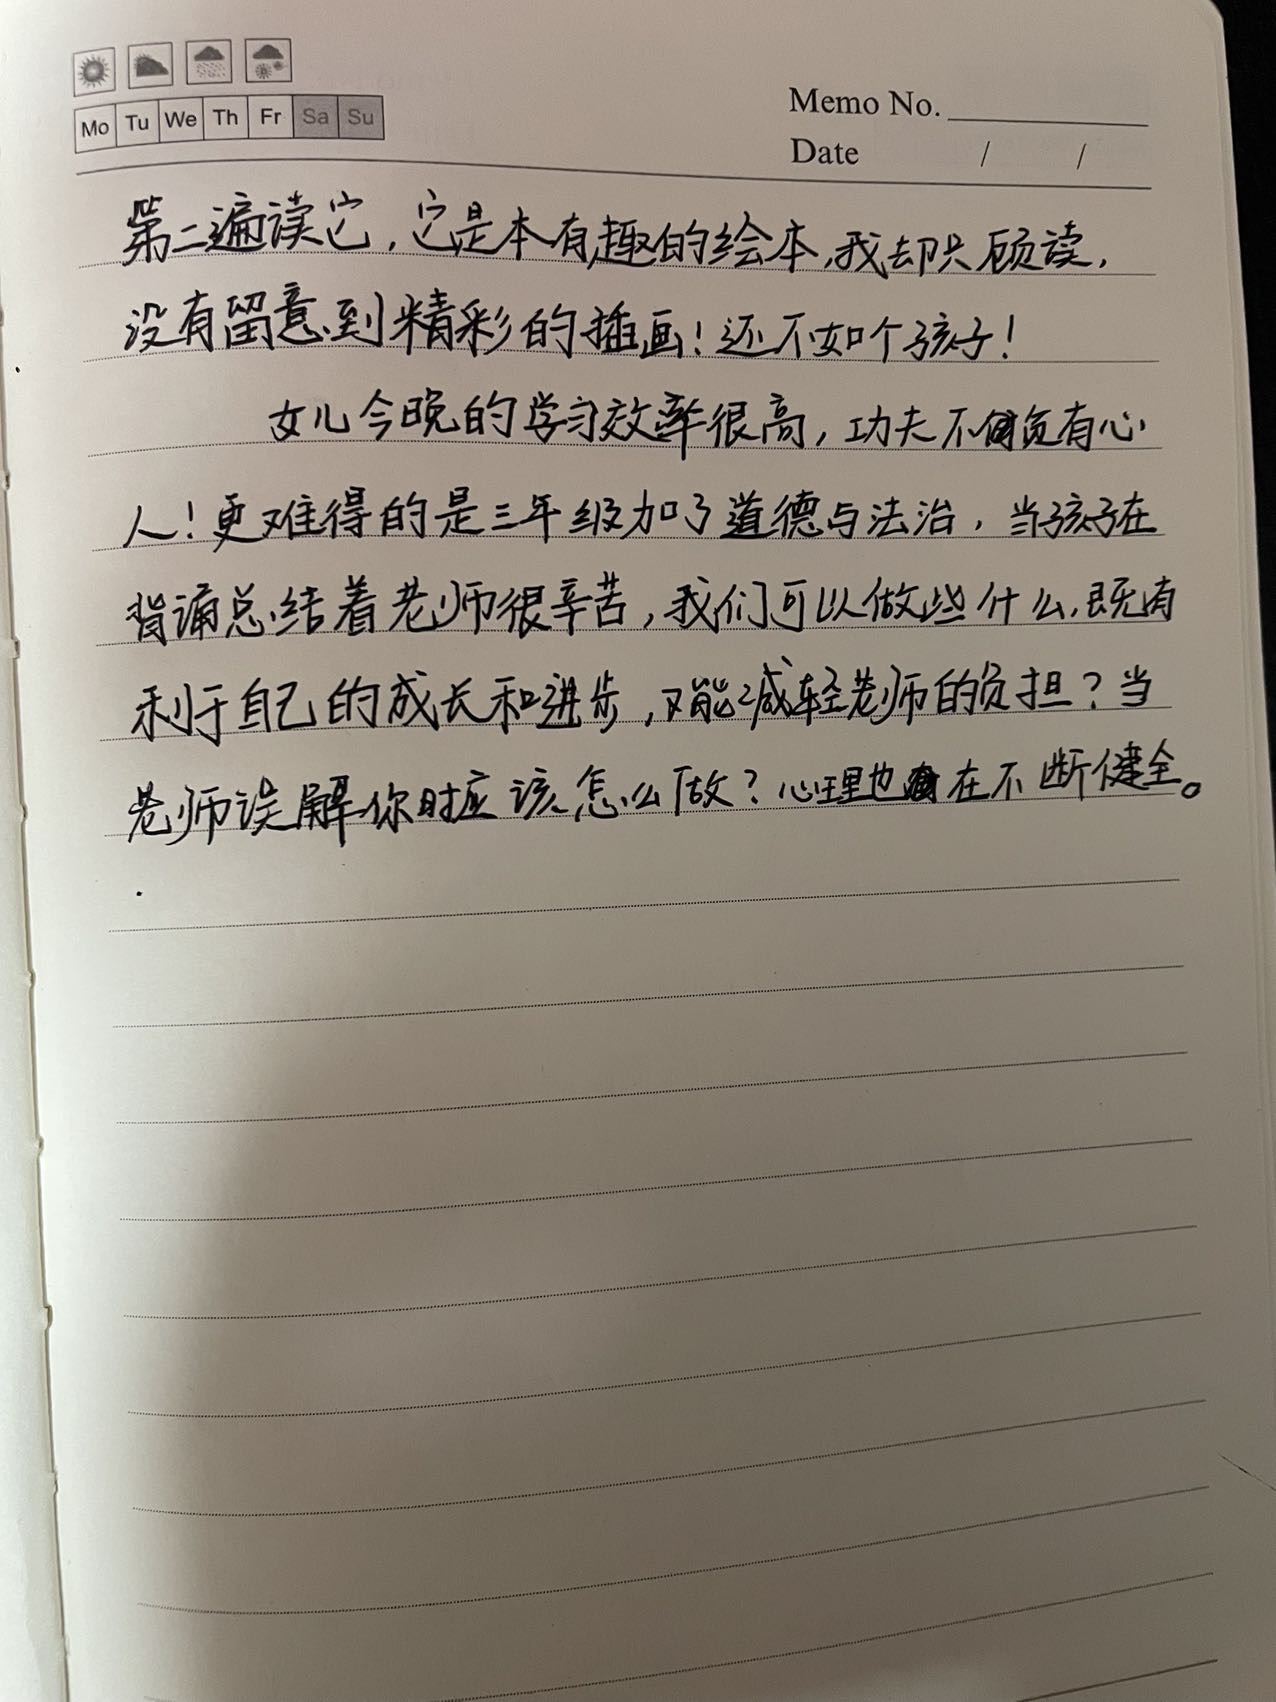 Mo Tu We Th Fr Sa Su
Memo No.
Date / /
第二遍读它，它是本有趣的绘本，我却只顾读，
没有留意到精彩的插画！还不如个孩子！
女儿今晚的学习效率很高，功夫不负有心
人！更难得的是三年级加了道德与法治，当孩子在
背诵总结着老师很辛苦，我们可以做些什么，既有
利于自己的成长和进步，又能减轻老师的负担？当
老师误解你时应该怎么做？心理也在不断健全。